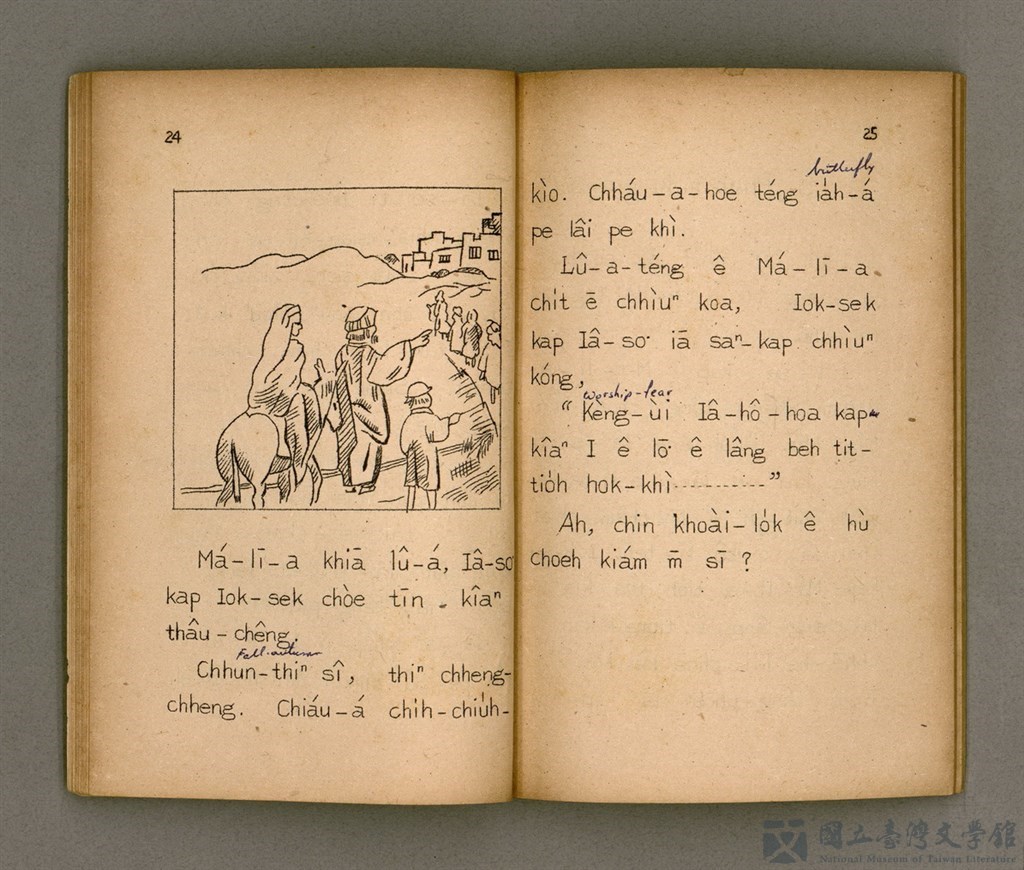 24
Má-lī-a khiā lû-á, Iâ-so
kap Iok-sek chòe tīn kîaⁿ
thâu-chêng.
Fall-autumn
Chhun-thiⁿ sî, thiⁿ chheng-
chheng. Chiáu-á chih-chiuh-
25
butterfly
kìo. Chháu-a-hoe téng ia̍h-á
pe lâi pe khì.
Lû-a-téng ê Má-lī-a
chi̍t ē chhìuⁿ koa, Iok-sek
kap Iâ-so͘ iā saⁿ-kap chhìuⁿ
kóng,
worship-fear
“Kèng-ùi Iâ-hô-hoa kap
kîaⁿ I ê lō͘ ê lâng beh tit-
tio̍h hok-khì----------”
Ah, chin khoài-lo̍k ê hù
choeh kiám m̄ sī?
國立臺灣文學館
National Museum of Taiwan Literature